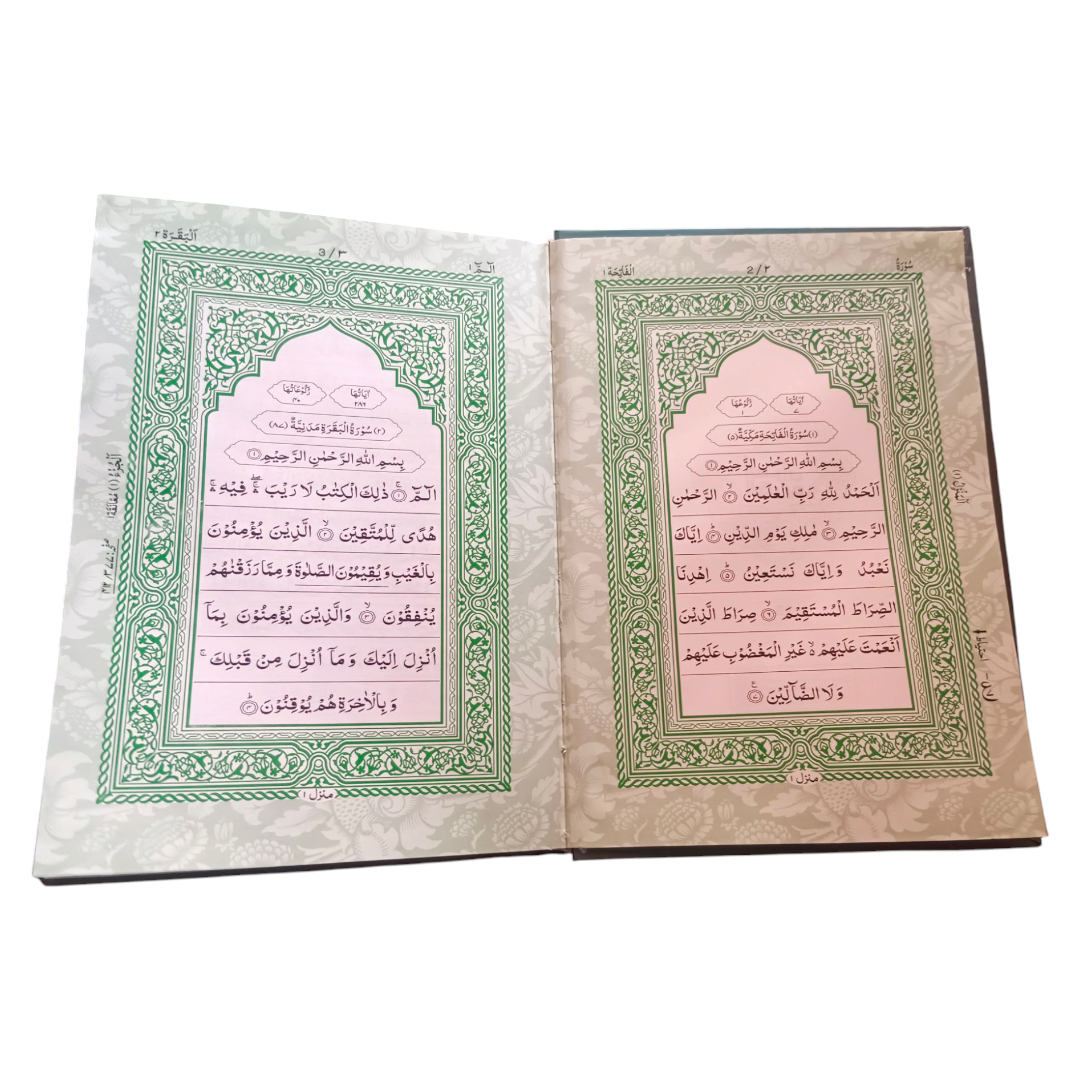 سُوْرَةُ
2/۲
الْفَاتِحَة ۱
اٰيَاتُهَا ۷
رُكُوْعُهَا ۱
(۱) سُوْرَةُ الْفَاتِحَةِ مَكِّيَّةٌ (۵)
بِسْمِ اللّٰهِ الرَّحْمٰنِ الرَّحِيْمِ ۝۱
اَلْحَمْدُ لِلّٰهِ رَبِّ الْعٰلَمِيْنَ ۙ۝۲ الرَّحْمٰنِ
الرَّحِيْمِ ۙ۝۳ مٰلِكِ يَوْمِ الدِّيْنِ ۭ۝۴ اِيَّاكَ
نَعْبُدُ وَاِيَّاكَ نَسْتَعِيْنُ ۭ۝۵ اِهْدِنَا
الصِّرَاطَ الْمُسْتَقِيْمَ ۙ۝۶ صِرَاطَ الَّذِيْنَ
اَنْعَمْتَ عَلَيْهِمْ ۙ۬ غَيْرِ الْمَغْضُوْبِ عَلَيْهِمْ
وَلَا الضَّآلِّيْنَ ۧ۝۷
منزل ۱
الٓمّٓ ۱
3/۳
اَلْبَقَرَة ۲
اٰيَاتُهَا ۲۸۶
رُكُوْعَاتُهَا ۴۰
(۲) سُوْرَةُ الْبَقَرَةِ مَدَنِيَّةٌ (۸۷)
بِسْمِ اللّٰهِ الرَّحْمٰنِ الرَّحِيْمِ
الٓمّٓ ۚ۝۱ ذٰلِكَ الْكِتٰبُ لَا رَيْبَ ۛۖ فِيْهِ ۛۚ
هُدًى لِّلْمُتَّقِيْنَ ۙ۝۲ الَّذِيْنَ يُؤْمِنُوْنَ
بِالْغَيْبِ وَيُقِيْمُوْنَ الصَّلٰوةَ وَمِمَّا رَزَقْنٰهُمْ
يُنْفِقُوْنَ ۙ۝۳ وَالَّذِيْنَ يُؤْمِنُوْنَ بِمَآ
اُنْزِلَ اِلَيْكَ وَمَآ اُنْزِلَ مِنْ قَبْلِكَ ۚ
وَبِالْاٰخِرَةِ هُمْ يُوْقِنُوْنَ ۭ۝۴
منزل ۱